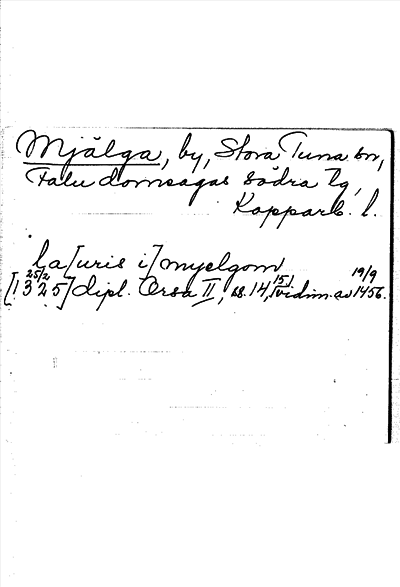 Mjälga, by, Stora Tuna sn,
Falu domsagas södra tg,
Kopparb. l.
la[uris i] myelgom
[1325] 25/2 dipl. Orsa II, ss. 14, 15, vidim. av 19/9 1456.